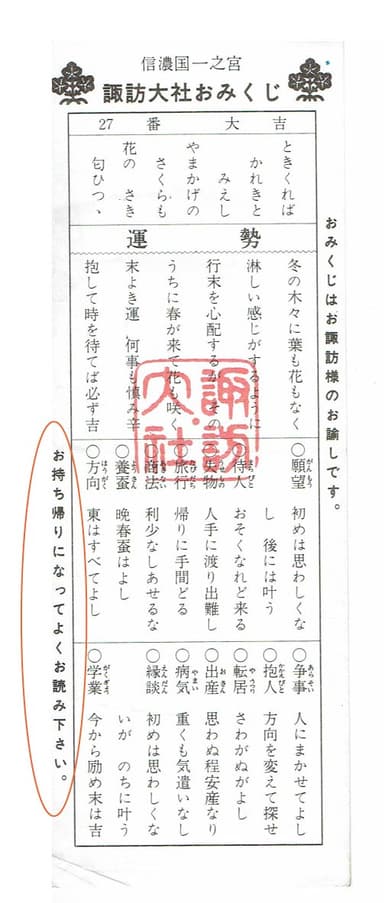 信濃国一之宮
諏訪大社おみくじ
27 番 大吉
ときくれば
かれきと
みえし
やまかげの
さくらも
花の さき
匂ひつゝ
運勢
冬の木々に葉も花もなく
淋しい感じがするように
行末を心配するが その
うちに春が来て花も咲く
末よき運 何事も慎み辛
抱して時を待てば必ず吉
諏訪大社
○願望 初めは思わしくな
し 後には叶う
○待人 おそくなれど来る
○失物 人手に渡り出難し
○旅行 帰りに手間どる
○商法 利少なしあせるな
○養蚕 晩春蚕はよし
○方向 東はすべてよし
○争事 人にまかせてよし
○抱人 方向を変えて探せ
○転居 さわがぬがよし
○出産 思わぬ程安産なり
○病気 重くも気遣いなし
○縁談 初めは思わしくな
いが のちに叶う
○学業 今から励め末は吉
おみくじはお諏訪様のお諭しです。
お持ち帰りになってよくお読み下さい。